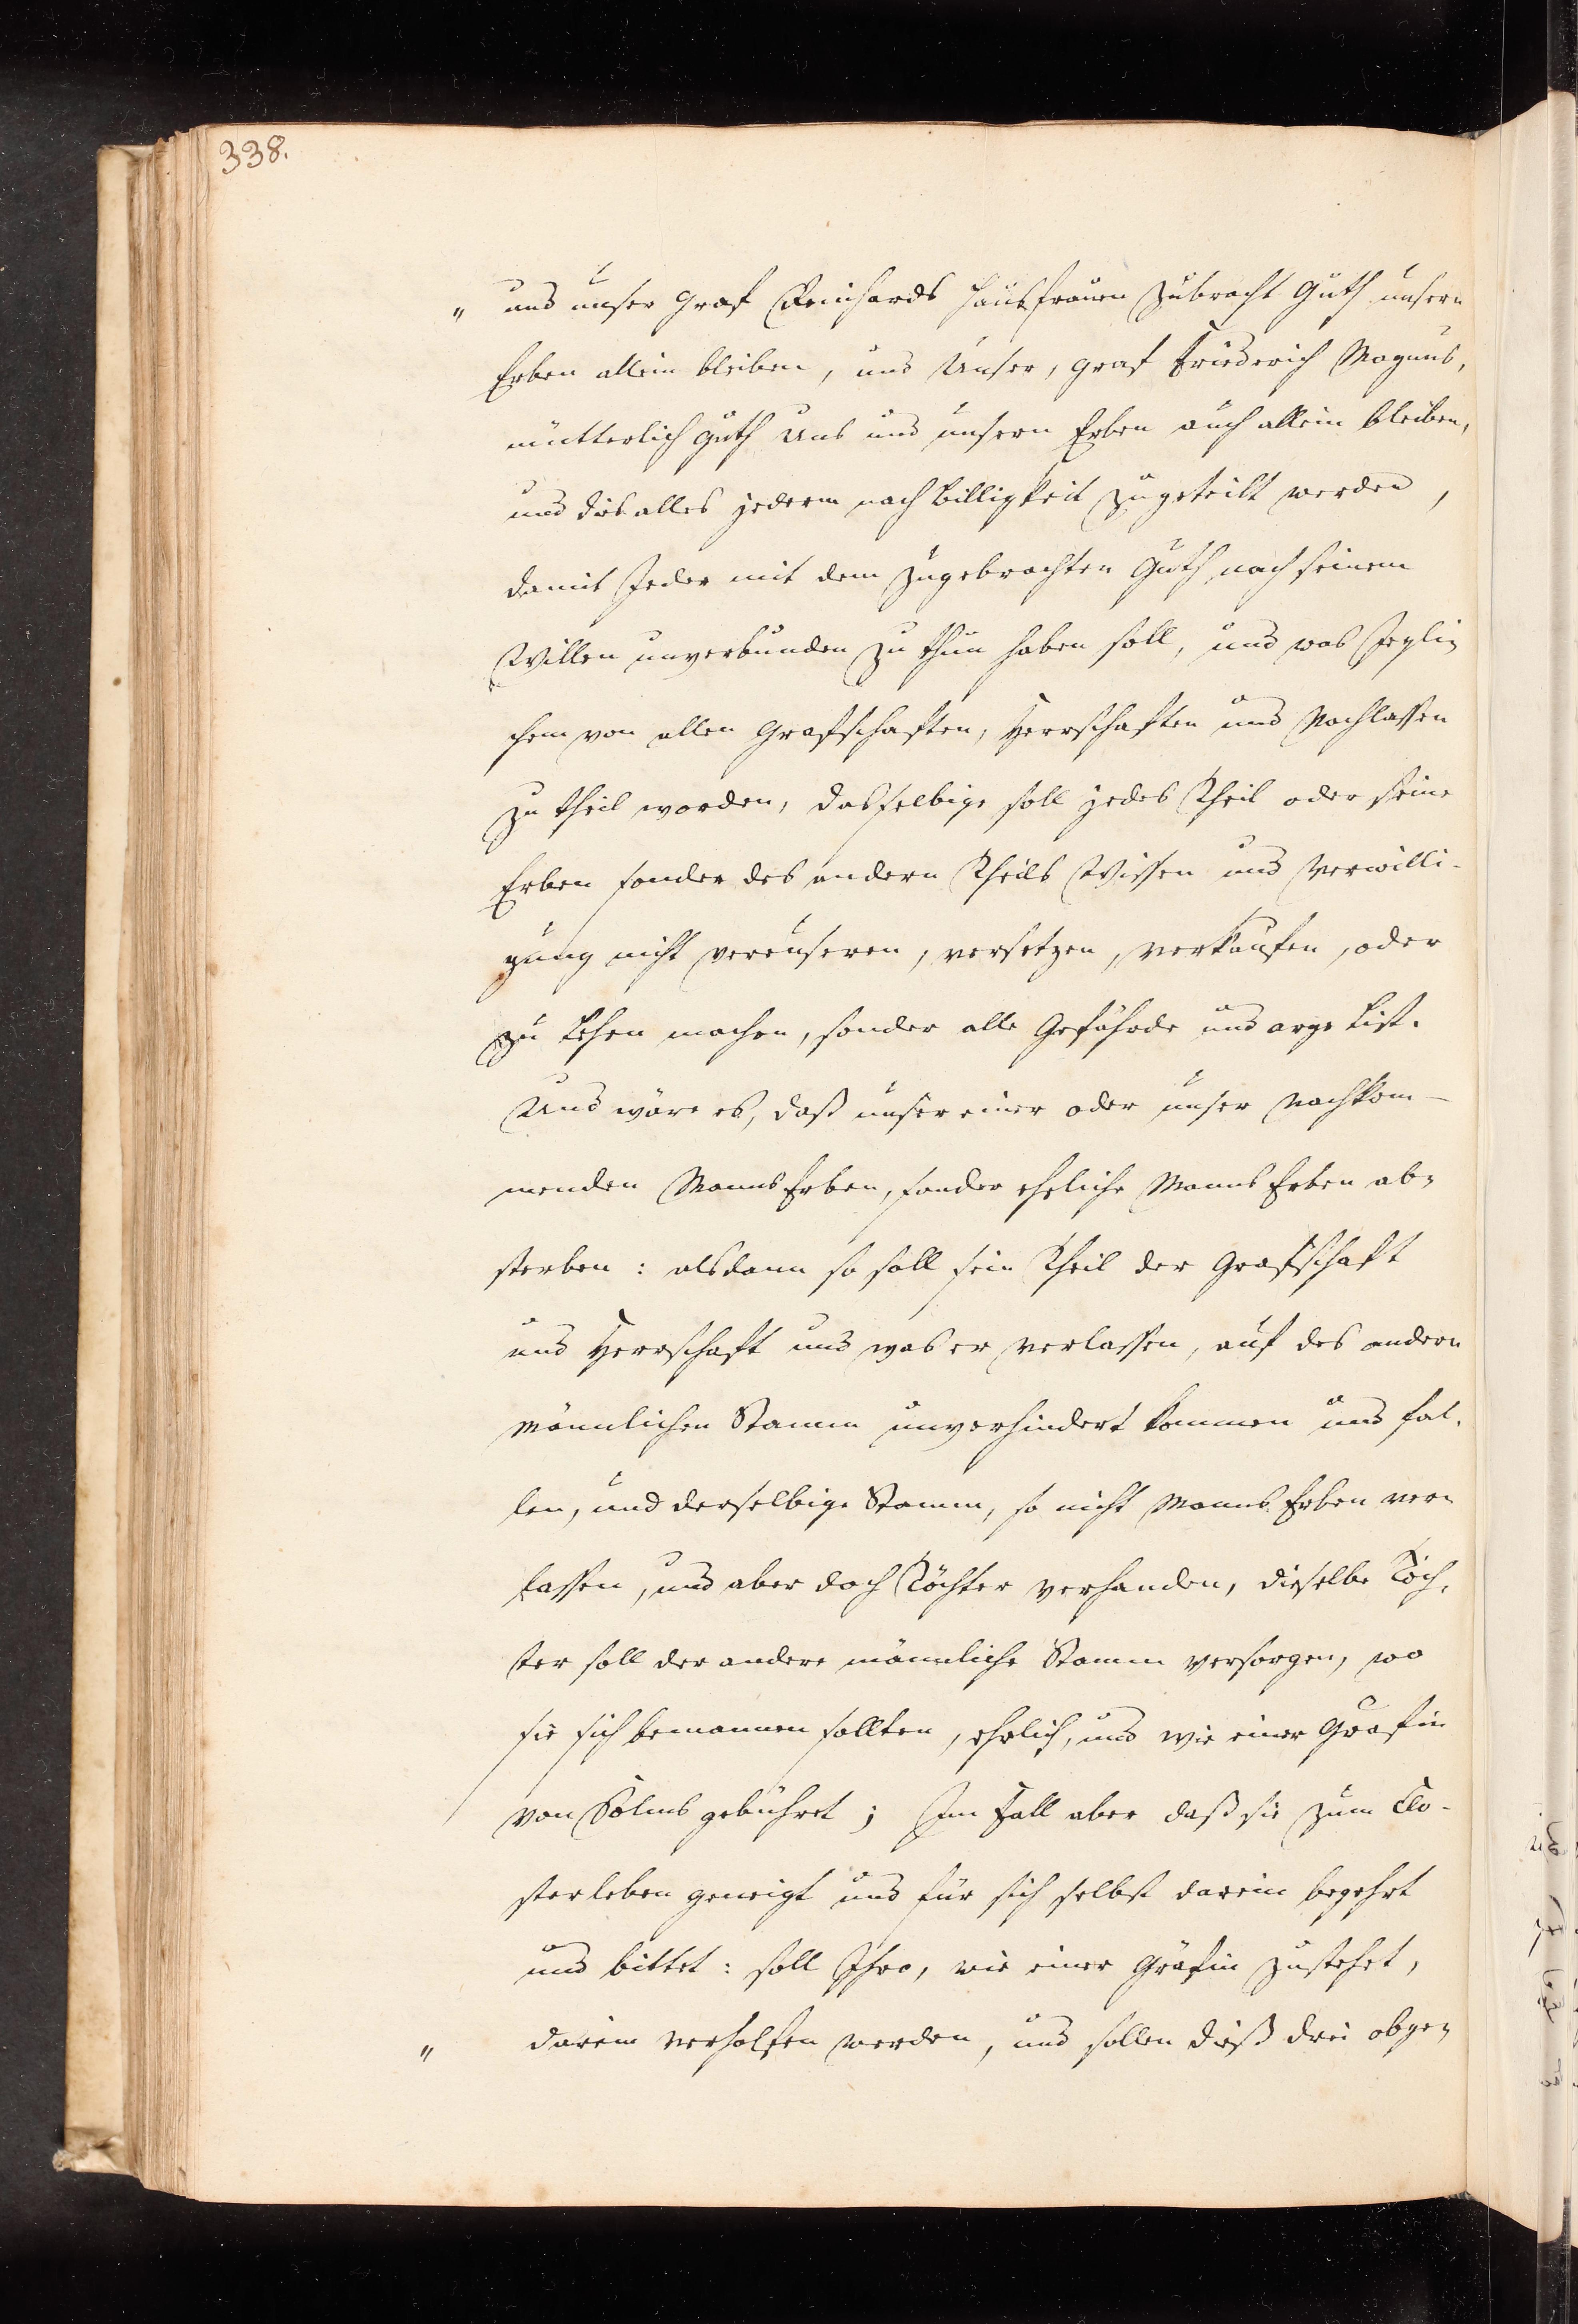 338.
" und unser Graf Reinhards Hausfrauen zubracht Guth unsern
Erben allein bleiben, und Unser, Graf Friederich Magnus,
mütterlich Guth Uns und unsern Erben auch allein bleiben,
und dis alles jederm nach Billigkeit zugeteilt werden,
damit Jeder mit dem zugebrachten Guth nach seinem
Willen unverbunden zu thun haben soll, und was Jegli=
chem von allen Grafschaften, Herrschaften und Nachlassen
zu theil worden, dasselbige soll jedes Theil oder seine
Erben sonder des andern Theils Wissen und Verwilli-
gung nicht vereuseren, versetzen, verkaufen, oder
zu Lehen machen, sonder alle Gefährde und arge List.
Und wäre es, daß unser einer oder unser Nachkom-
menden Manns Erben, sonder ehliche Manns Erben ab=
sterben: alsdann so soll sein Theil der Grafschaft
und Herrschaft und was er verlassen, auf des andern
Männlichen Stamm unverhindert kommen und fal-
len, und derselbige Stamm, so nicht Manns Erben ver=
lassen, und aber doch Töchter verhanden, dieselbe Töch-
ter soll der andere männliche Stamm versorgen, wo
sie sich bemannen sollten, ehrlich, und wie einer Grafin
von Solms gebühret; Im Fall aber daß sie zum Clo-
sterleben geneigt und für sich selbst darein begehrt
und bittet: soll Ihro, wie einer Gräfin zustehet,
" darein verholfen werden, und sollen dieß drei obge=